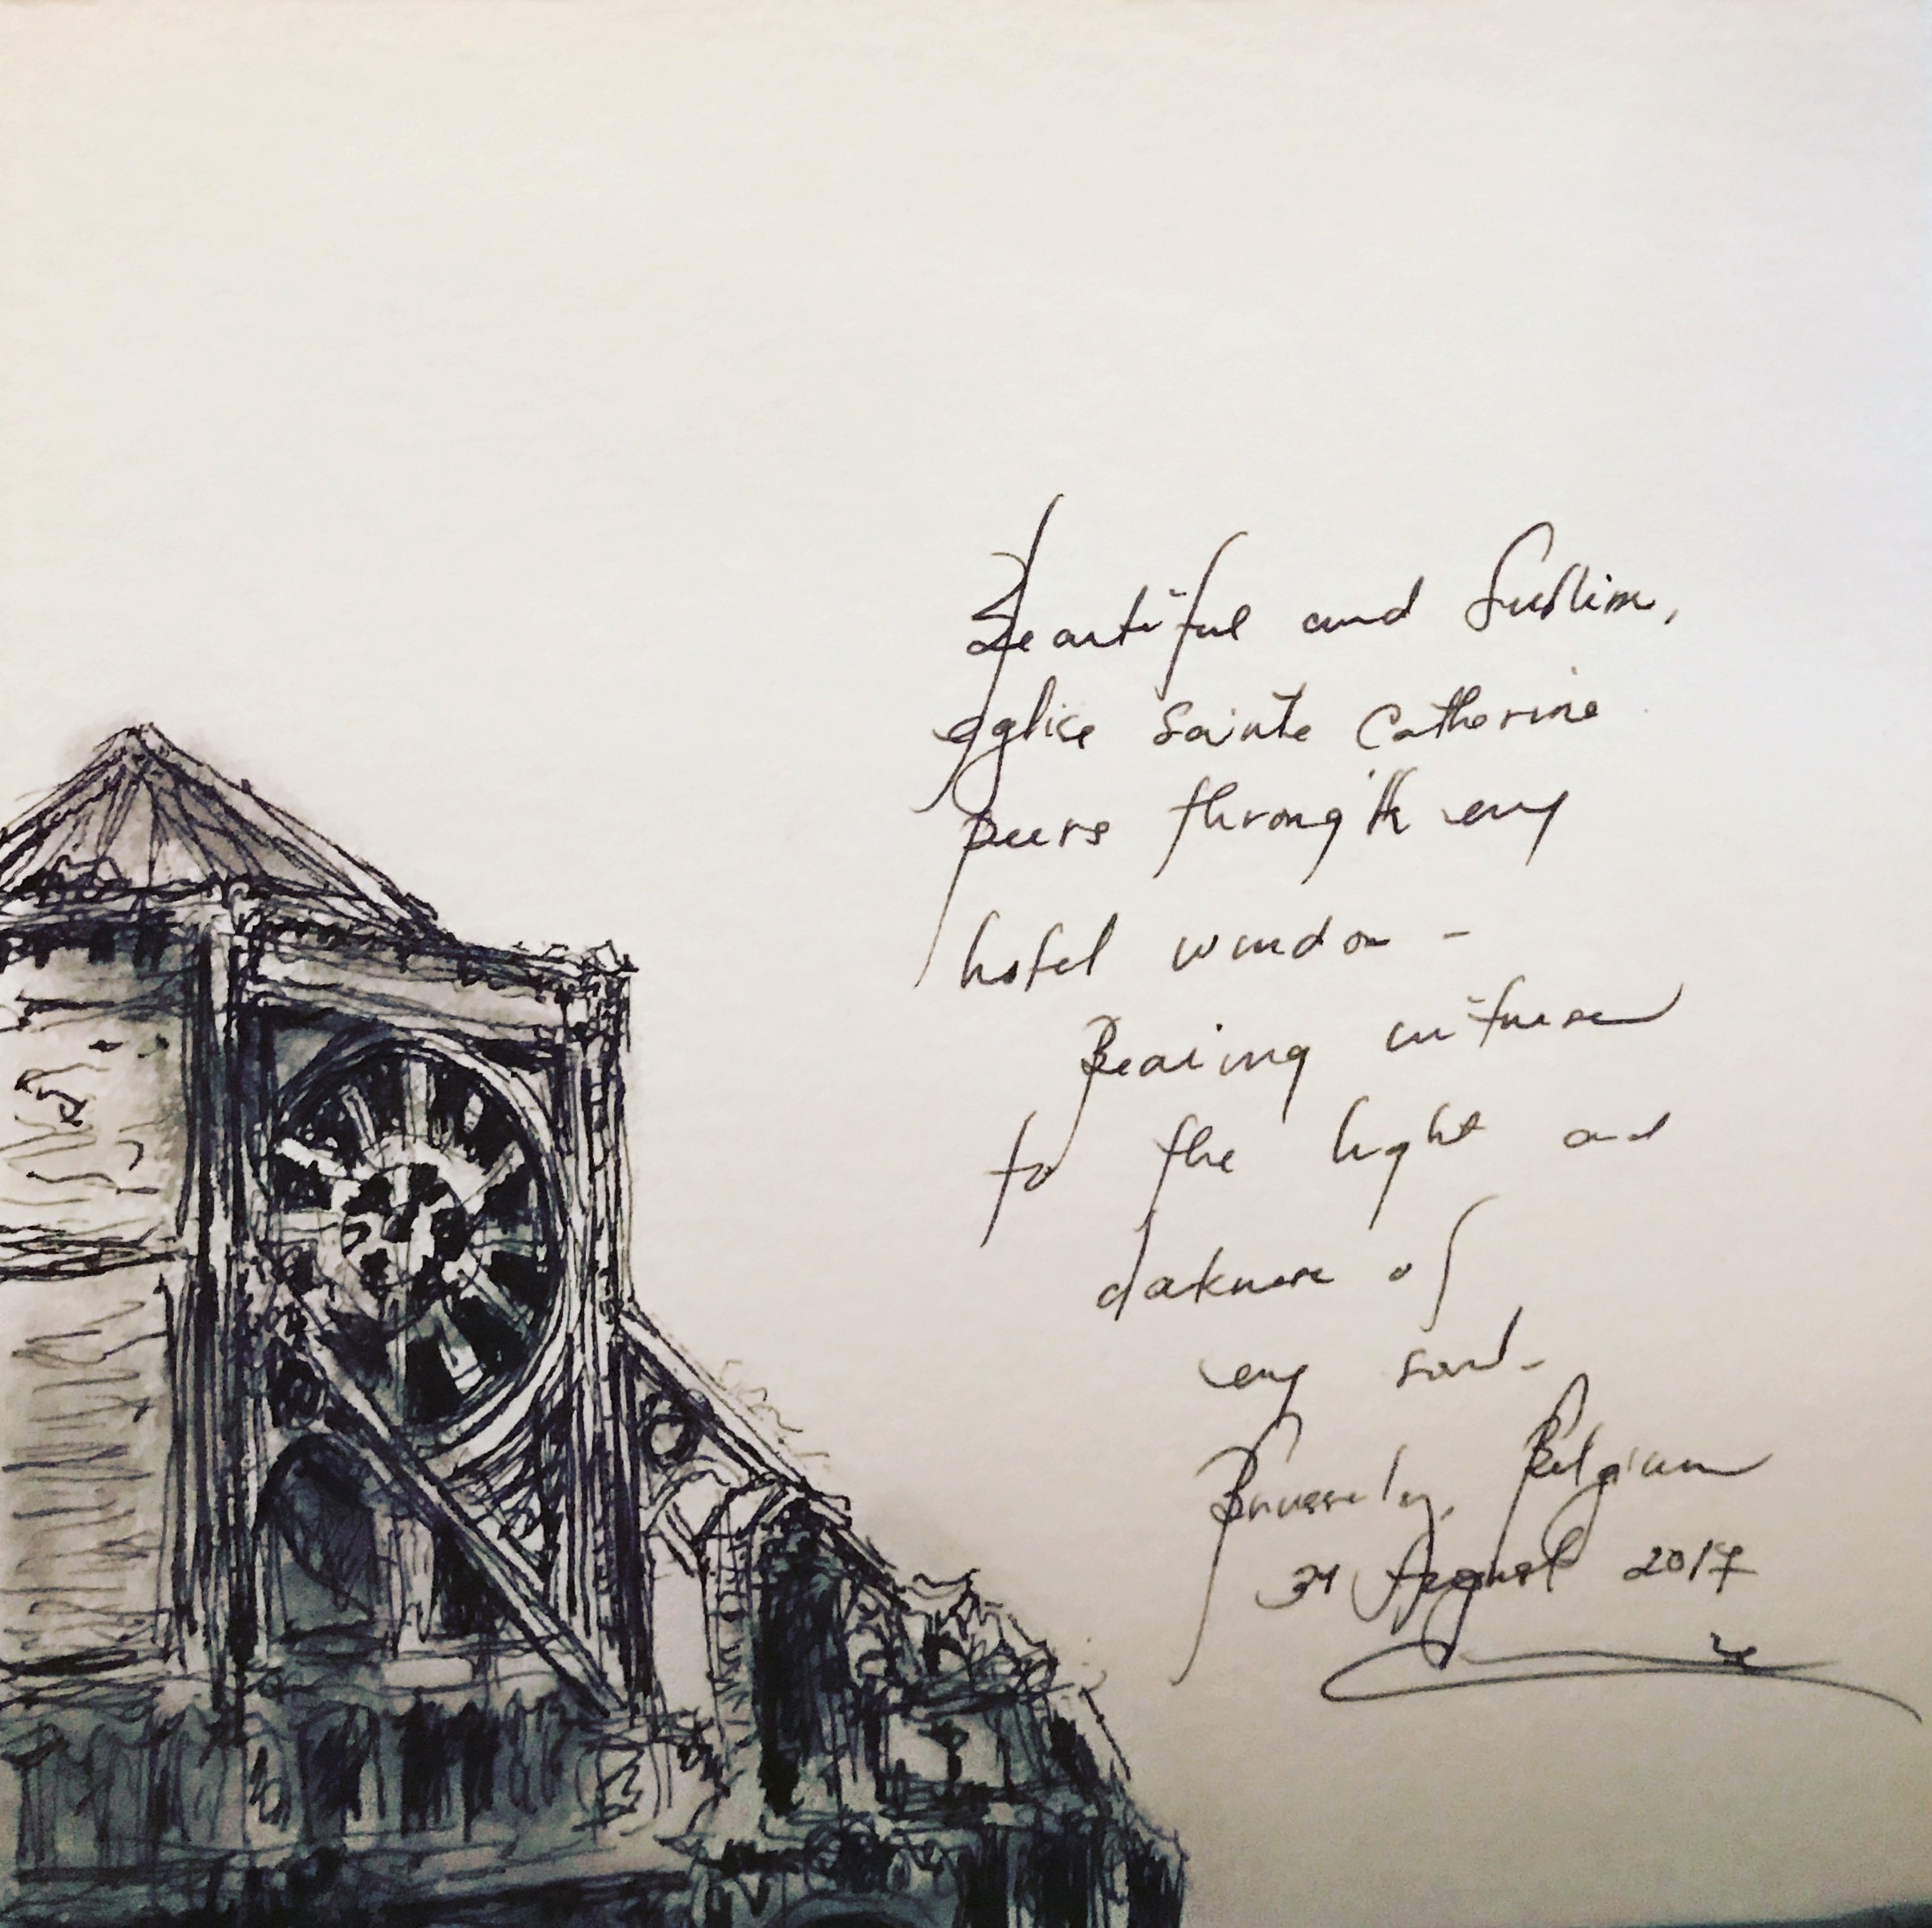 Beautiful and Sublime,
eglise Sainte Catherine
peers through my
hotel window -
Bearing witness
to the light and
darkness of
my soul.
Brussels, Belgium
31 August 2017